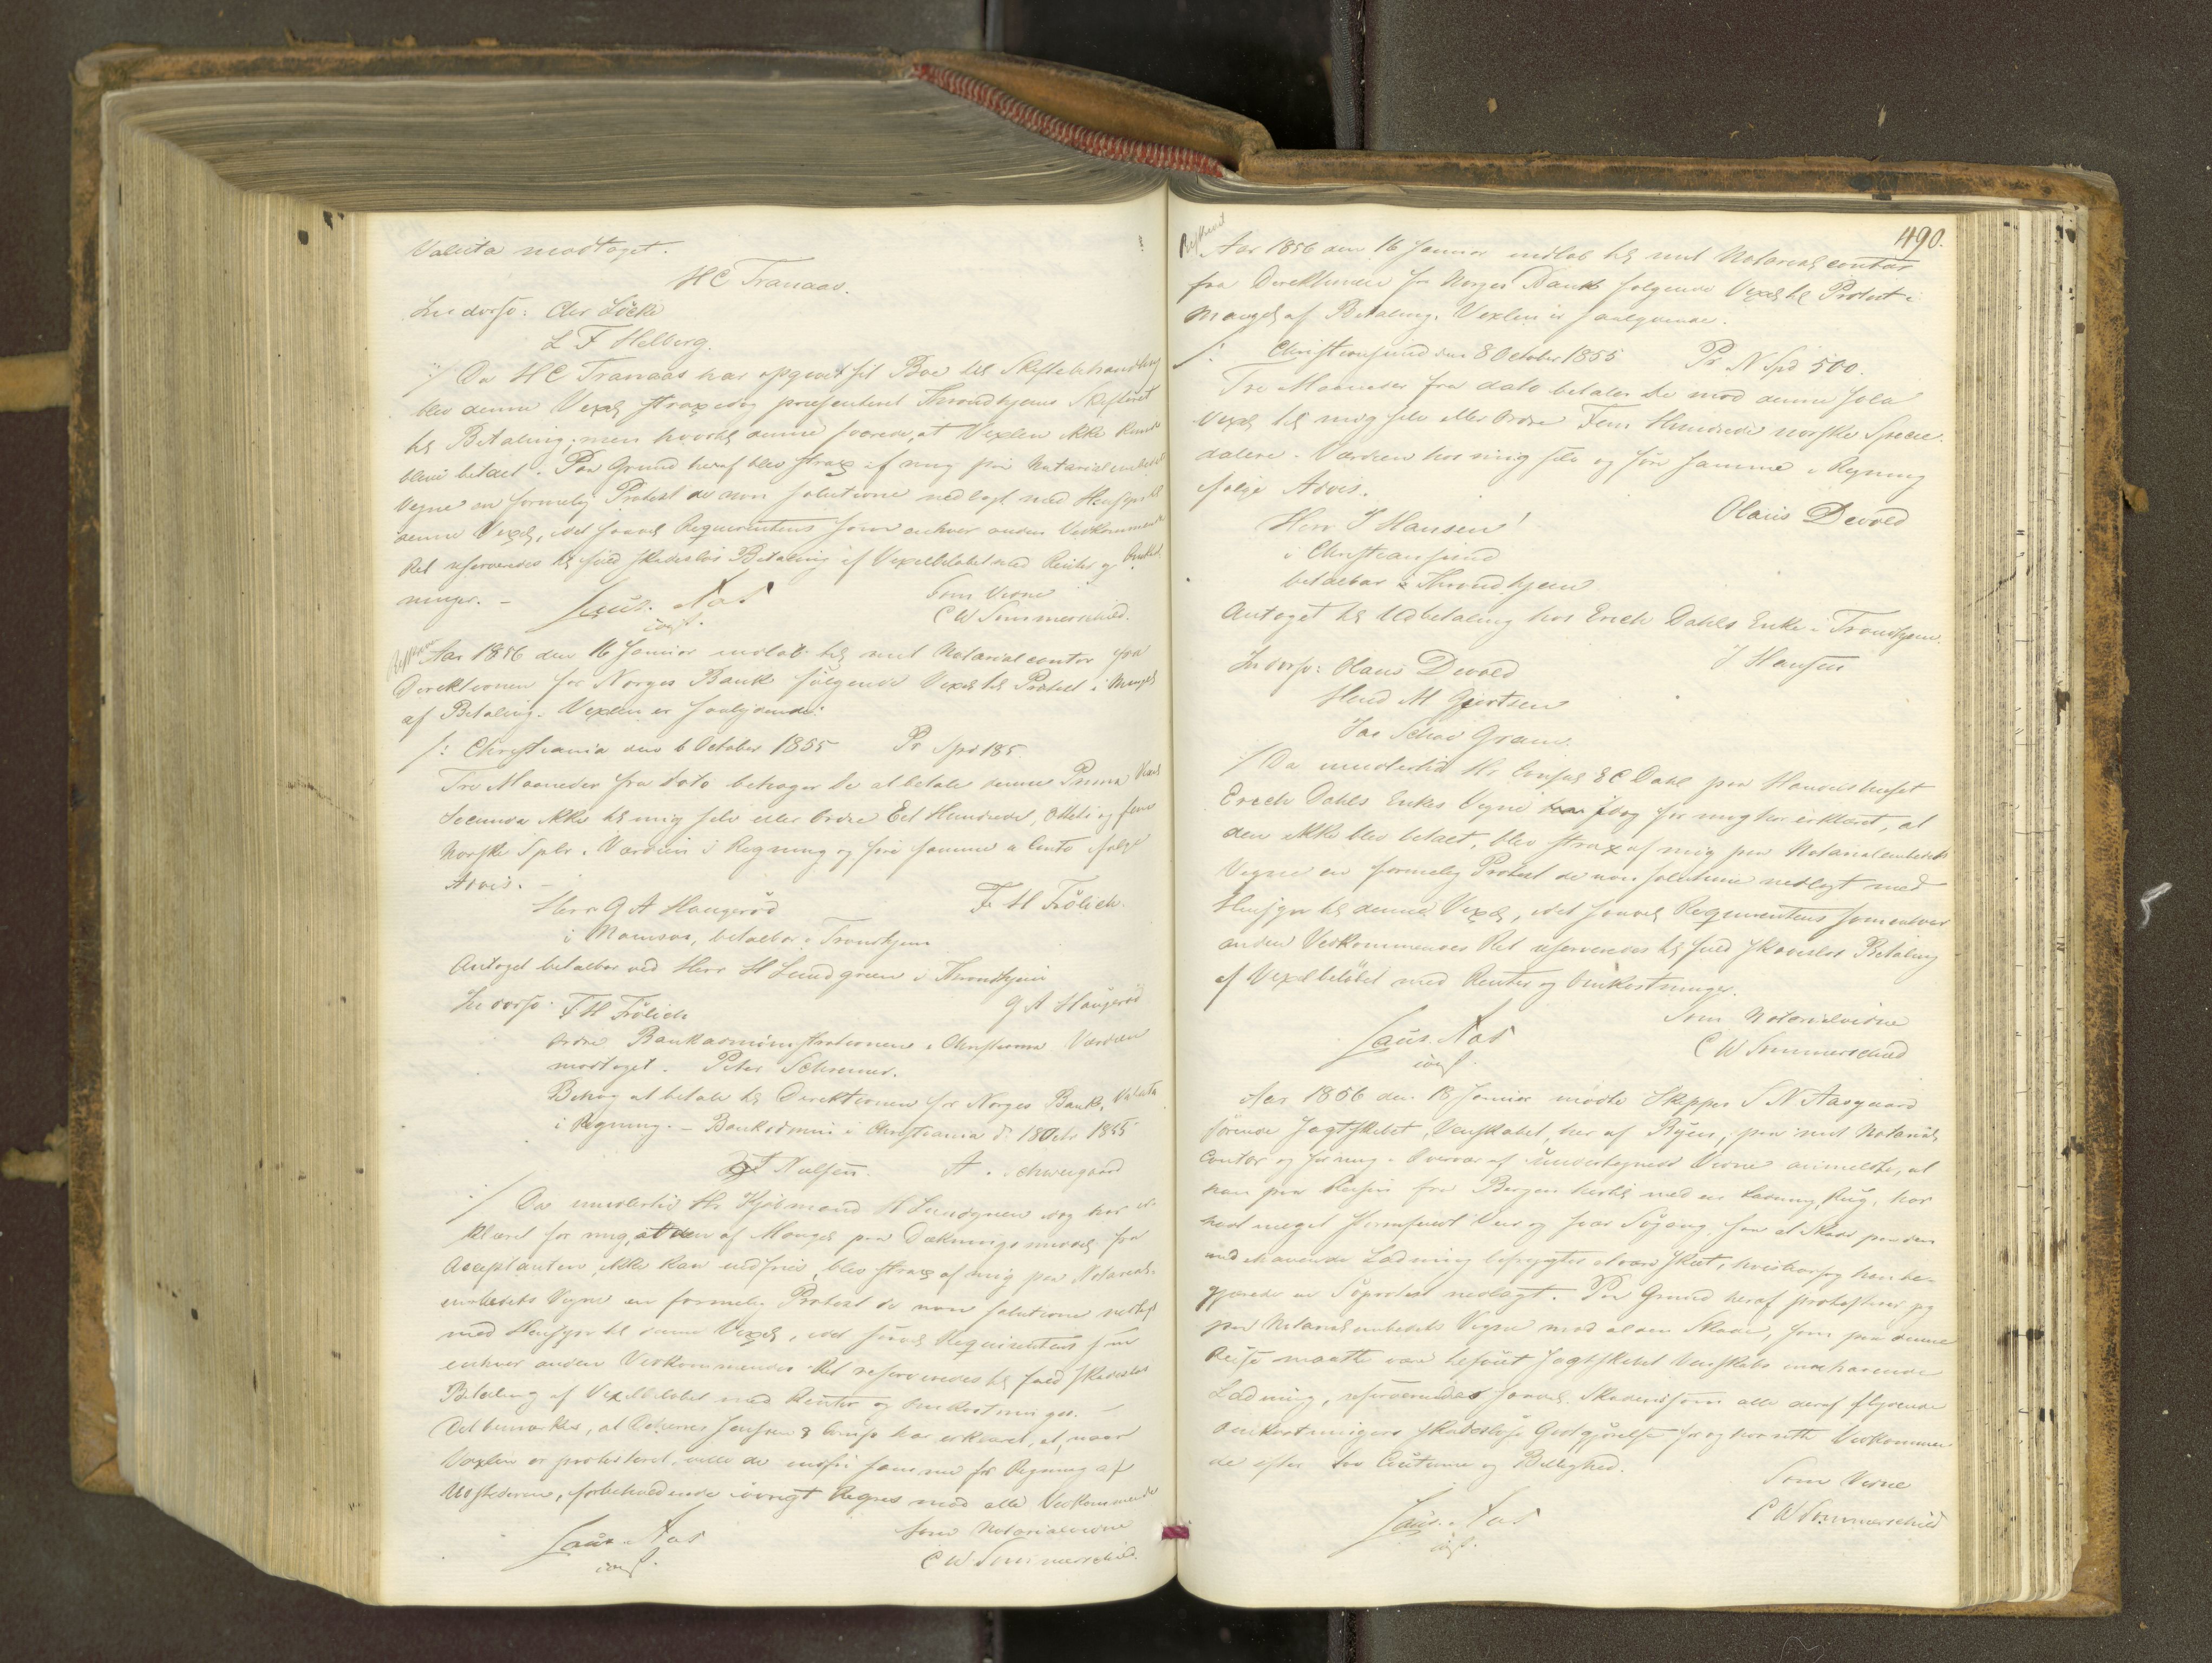 Valuta modtaget.
HC Tranaas.
Indorso: Chr Löcke
L F Helberg.
:/ Da HC Tranaas har opgivet sit Boe till Skiftebehandling
blev denne Vexel straxidag præsenteret Throndhjems Skifteret
til Betaling; men hvortil denne svarede, at Vexlen ikke kunde
blive betalt. Paa Grund heraf blev strax af mig paa Notarialembedets
Vegne en formelig Protest de non solutione nedlagt med Hensyn til
denne Vexel, idet saavel Requirentens som enhver anden Vedkommendes
Ret reserveredes til fuld skadeslös Betaling af Vexelbelöbet med Renter og Omkost-
ninger. –
Som Vidne
Laur. Aas
const.
C W Sommerschield.
Aar 1856 den 16 Januar indlob til mit Notarialcontor fra
Direktionen for Norges Bank fölgende Vexel til Protest i Mangel
af Betaling. Vexlen er saalydende:
/: Christiania den 6 October 1855 Pr Spd 185
Tre Maaneder fra dato behager De at betale denne Prima Vexel
Secunda ikke til mig selv eller Ordre Eet Hundrede, Otteti og fem
Norske Spdlr. Værdien i Regning og före samme a Conto ifölge
Advis. –
Herr G A Haugeröd
F H Frölich.
i Namsos, betalbar i Trondhjem
Antaget betalbar ved Herr H Lundgreen i Throndhjem
G A Haugeröd
Indorso: F H Frölich
Ordre Bankadministrationen i Christiania Værdien
modtaget. Peter Schreiner.
Behag at betale til Direktionen for Norges Bank, Valuta
i Regning. – Bankadmin i Christiania d. 18 Octr 1855
Nielsen. A. Schweigaard
:/ Da imidlertid Hr Kjöbmand H Lundgreen idag har er-
klæret for mig, at den af Mangel paa Dækningsmiddel fra
Acceptanten, ikke kan indfries, blev strax af mig paa Notarial-
embedets Vegne en formelig Protest de non solutione nedlagt
med Hensyn til denne Vexel, idet saavel Requirentens som
enhver anden Vedkommendes Ret reserveredes til fuld skadeslös
Betaling af Vexelbelöbet med Renter og Omkostninger. –
Det bemærkes, at Dhrr Jensen & Comp har erklæret, at, naar
Vexlen er protesteret, ville de indfri samme for Regning af
Udstederen, forbeholdende iövrigt Regres mod alle Vedkommende
Som Notarialvidne
Laur. Aas
const.
C W Sommerschield.
490.
Aar 1856 den 16 Januar indlob til mit Notarialcontor
fra Direktionen for Norges Bank fölgende Vexel til Protest i
Mangel af Betaling. Vexlen er saalydende.
/: Christiansund den 8 October 1855 Pr N Spd 500.
Tre Maaneder fra dato betaler De mod denne Sola
Vexel til mig selv eller Ordre Fem Hundrede norske Specie-
dalere. Værdien hos mig selv og för samme i Regning
ifölge Advis.
Olaus Devold
Herr J Hansen!
i Christiansund
betalbar i Throndhjem
Antaget til Udbetaling hos Erich Dahls Enke i Trondhjem.
J Hansen
Indorso: Olaus Devold
Hend M Gjertsen
Jas Schow Gram.
:/ Da imidlertid Hr Consul E C Dahl paa Handelshuset
Erich Dahls Enkes Vegne idag for mig har erklæret, at
den ikke blev betalt, blev strax af mig paa Notarialembedets
Vegne en formelig Protest de non solutione nedlagt med
Hensyn til denne Vexel, idet saavel Requirentens som enhver
anden Vedkommendes Ret reserveredes til fuld skadeslös Betaling
af Vexelbelöbet med Renter og Omkostninger.
Som Notarialvidne
Laur. Aas
const.
C W Sommerschield
Aar 1856 den 18 Januar mödte Skipper S N Aasgaard
förende Jagtskibet, Venskabet, her af Byen, paa mit Notarial
Contor og for mig i Overvær af undertegnede Vidne anmeldte, at
han paa Reisen fra Bergen hertil med en Ladning Rug, har
havt meget stormfuldt Veir og svær Sögang, saa at Skade paa den
medhavende Ladning befrygtes at være skeet, hvorfor han be-
gjærede en Söprotest nedlagt. Paa Grund heraf protesterer jeg
paa Notarialembedets Vegne mod al den Skade, som paa denne
Reise maatte være tilföiet Jagtskibet Venskabets indehavende
Ladning, reserverende saavel Skadens som alle deraf flydende
Omkostningers skadeslöse Godtgjörelse for og hos rette Vedkommen
de efter Lov Coutume og Billighed.
Som Vidne
Laur. Aas
const.
C W Sommerschield